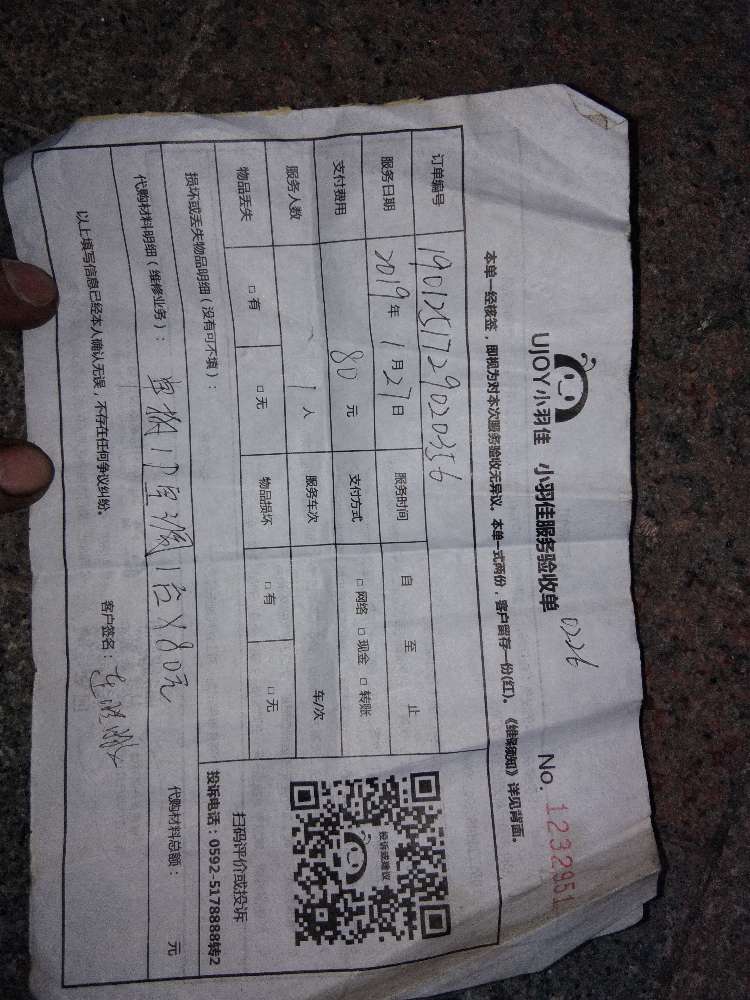 UJOY小羽佳 小羽佳服务验收单 0226 No. 1232951
本单一经核签，即视为对本次服务验收无异议。本单一式两份，客户留存一份(红)。《维保须知》详见背面。
订单编号 1901251729020356
服务日期 2019年1月27日 服务时间 自 至 止
支付费用 80元 支付方式 □网络 □现金 □转账
服务人数 1人 服务车次 车/次
物品丢失 □有 □无 物品损坏 □有 □无
损坏或丢失物品明细（没有可不填）：
投诉或建议
扫码评价或投诉
投诉电话：0592-5178888转2
代购材料明细（维修业务）： 1台×80元 代购材料总额： 元
以上填写信息已经本人确认无误，不存在任何争议纠纷。 客户签名：